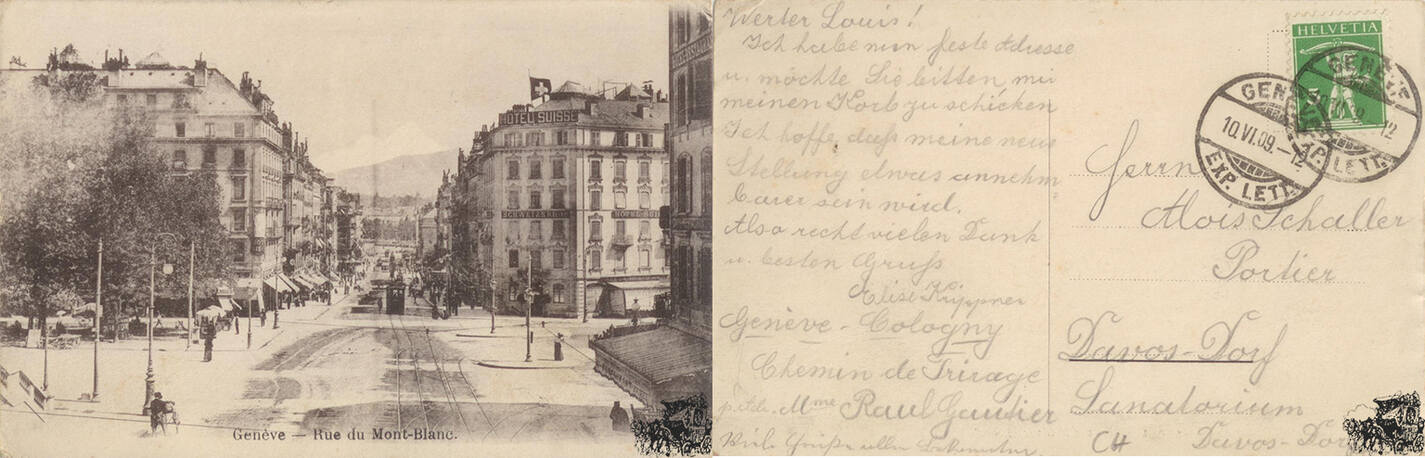 HOTEL SUISSE
Genève — Rue du Mont-Blanc.
Werter Louis!
Ich habe nun feste Adresse
u. möchte Sie bitten, mir
meinen Korb zu schicken
Ich hoffe, dass meine neue
Stellung etwas annehm
barer sein wird.
Also recht vielen Dank
u. besten Gruß
Elise Küppner
Genève - Cologny
Chemin de
Mme Raoul Gautier
Viele Grüße allen Bekannten
HELVETIA
5
GENÈVE
10.VI.09.-12
EXP. LETT.
GENÈVE
-12
EXP. LETT.
Herrn
Alois Schaller
Portier
Davos-Dorf
Sanatorium
CH Davos-Dorf